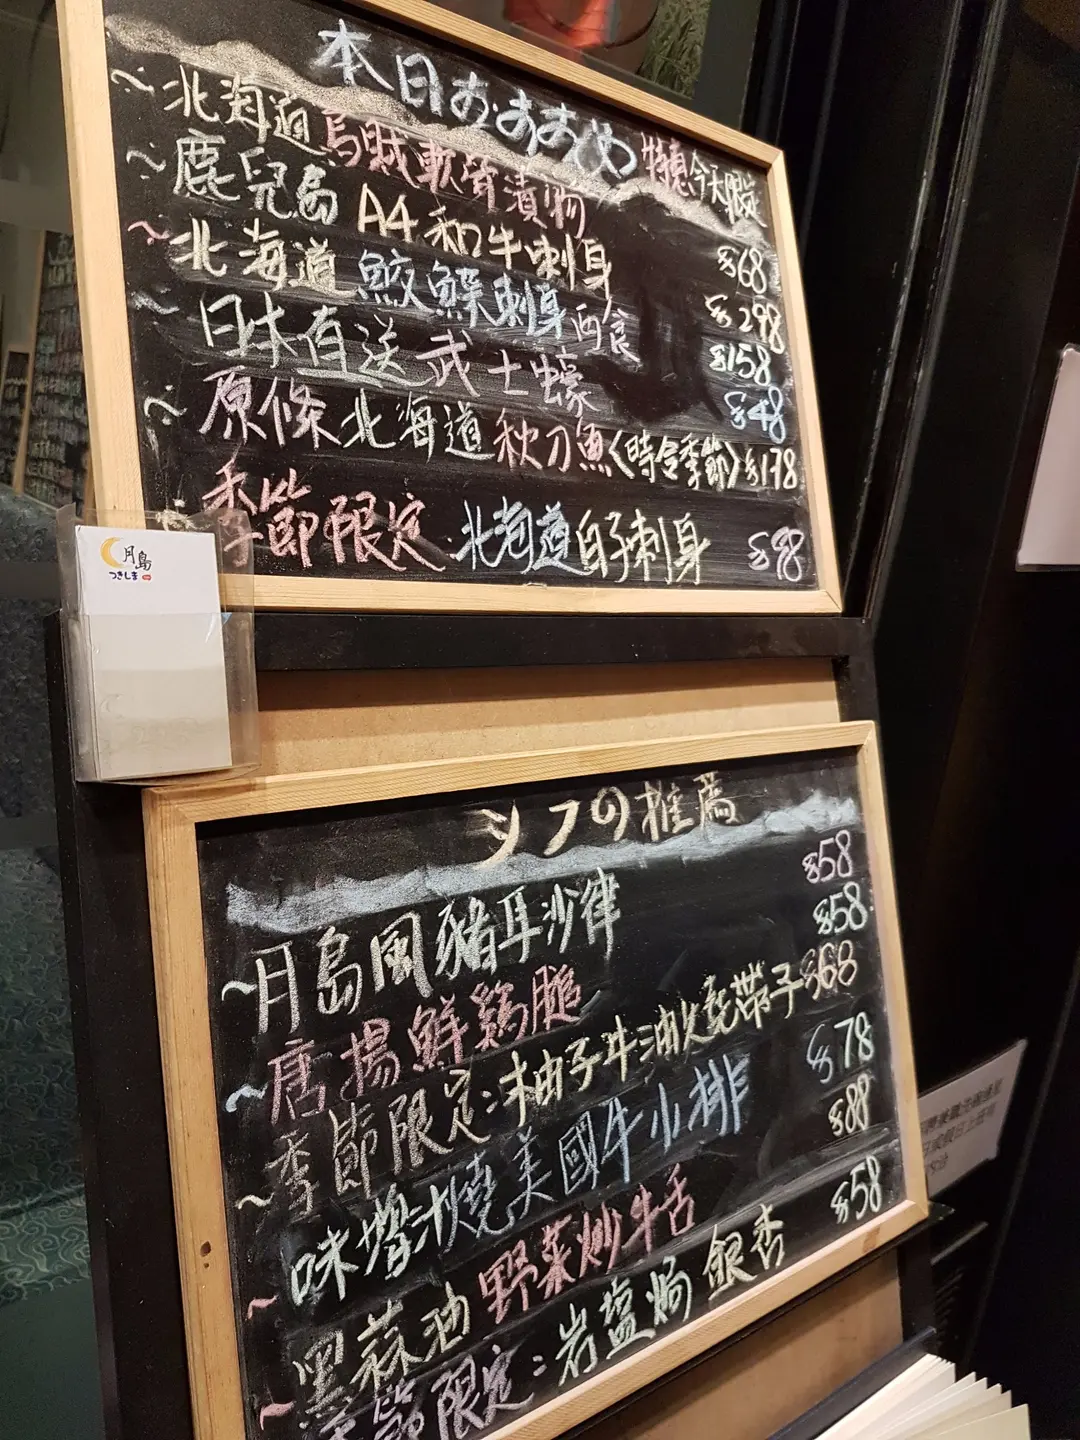 本日おああめや 特惠今天限定
~北海道烏賊軟骨漬物 $68
~鹿兒島 A4 和牛刺身 $298
~北海道 鮫鰈刺身 两食 $158
~日本直送 武士蠔 $48
~原條北海道秋刀魚〈時令季節〉$178
季節限定:北海道白子刺身 $98
月島
つきしま
シフの推薦
~月島風豬耳沙律 $58
~唐揚鮮鷄腿 $58
~季節限定:柚子牛油火尭帶子 $68
味噌汁燒美國牛小排 $78
~黑蒜油野菜炒牛舌 $88
~季節限定:岩塩焗銀杏 $58